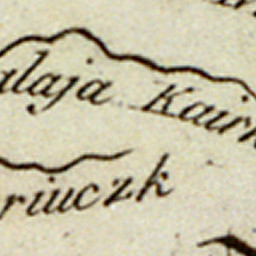 alaja Kair
riuczk